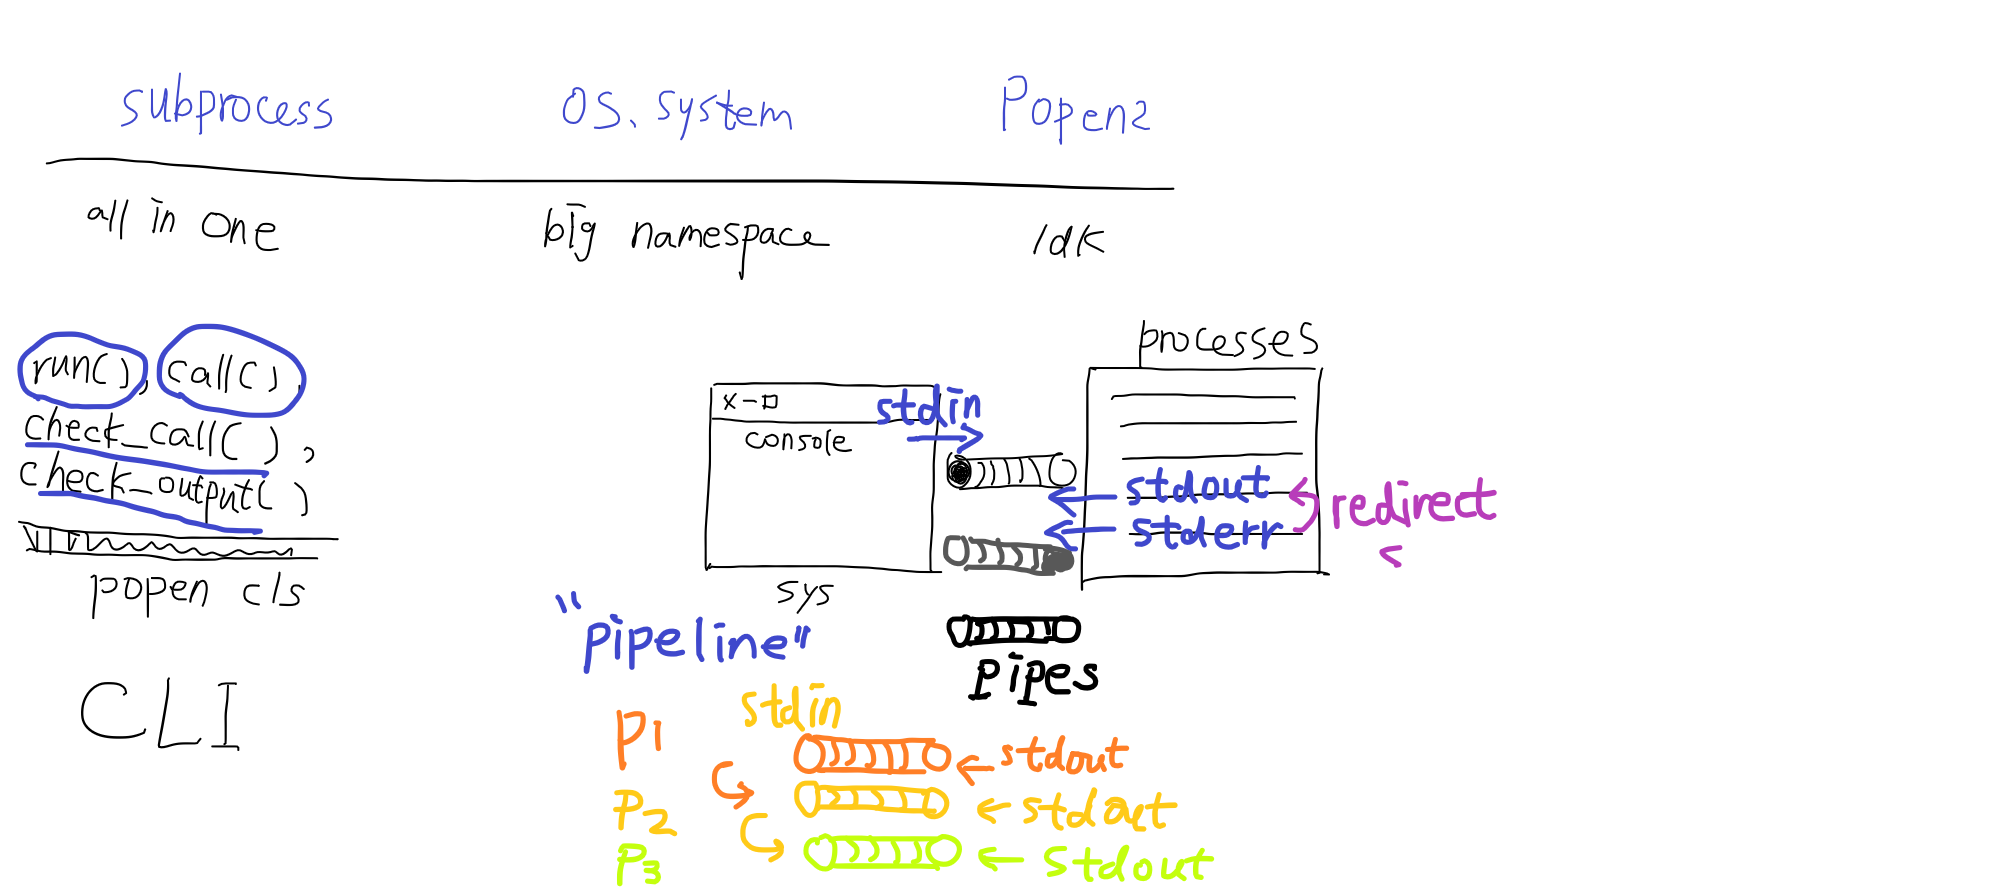 subprocess OS.system Popen2
all in one big namespace idk
run(), call(),
check_call(),
check_output()
popen cls
CLI
processes
x - □
console
sys
stdin
stdout
stderr
redirect
pipes
"pipeline"
stdin
P1 stdout
P2 stdout
P3 stdout